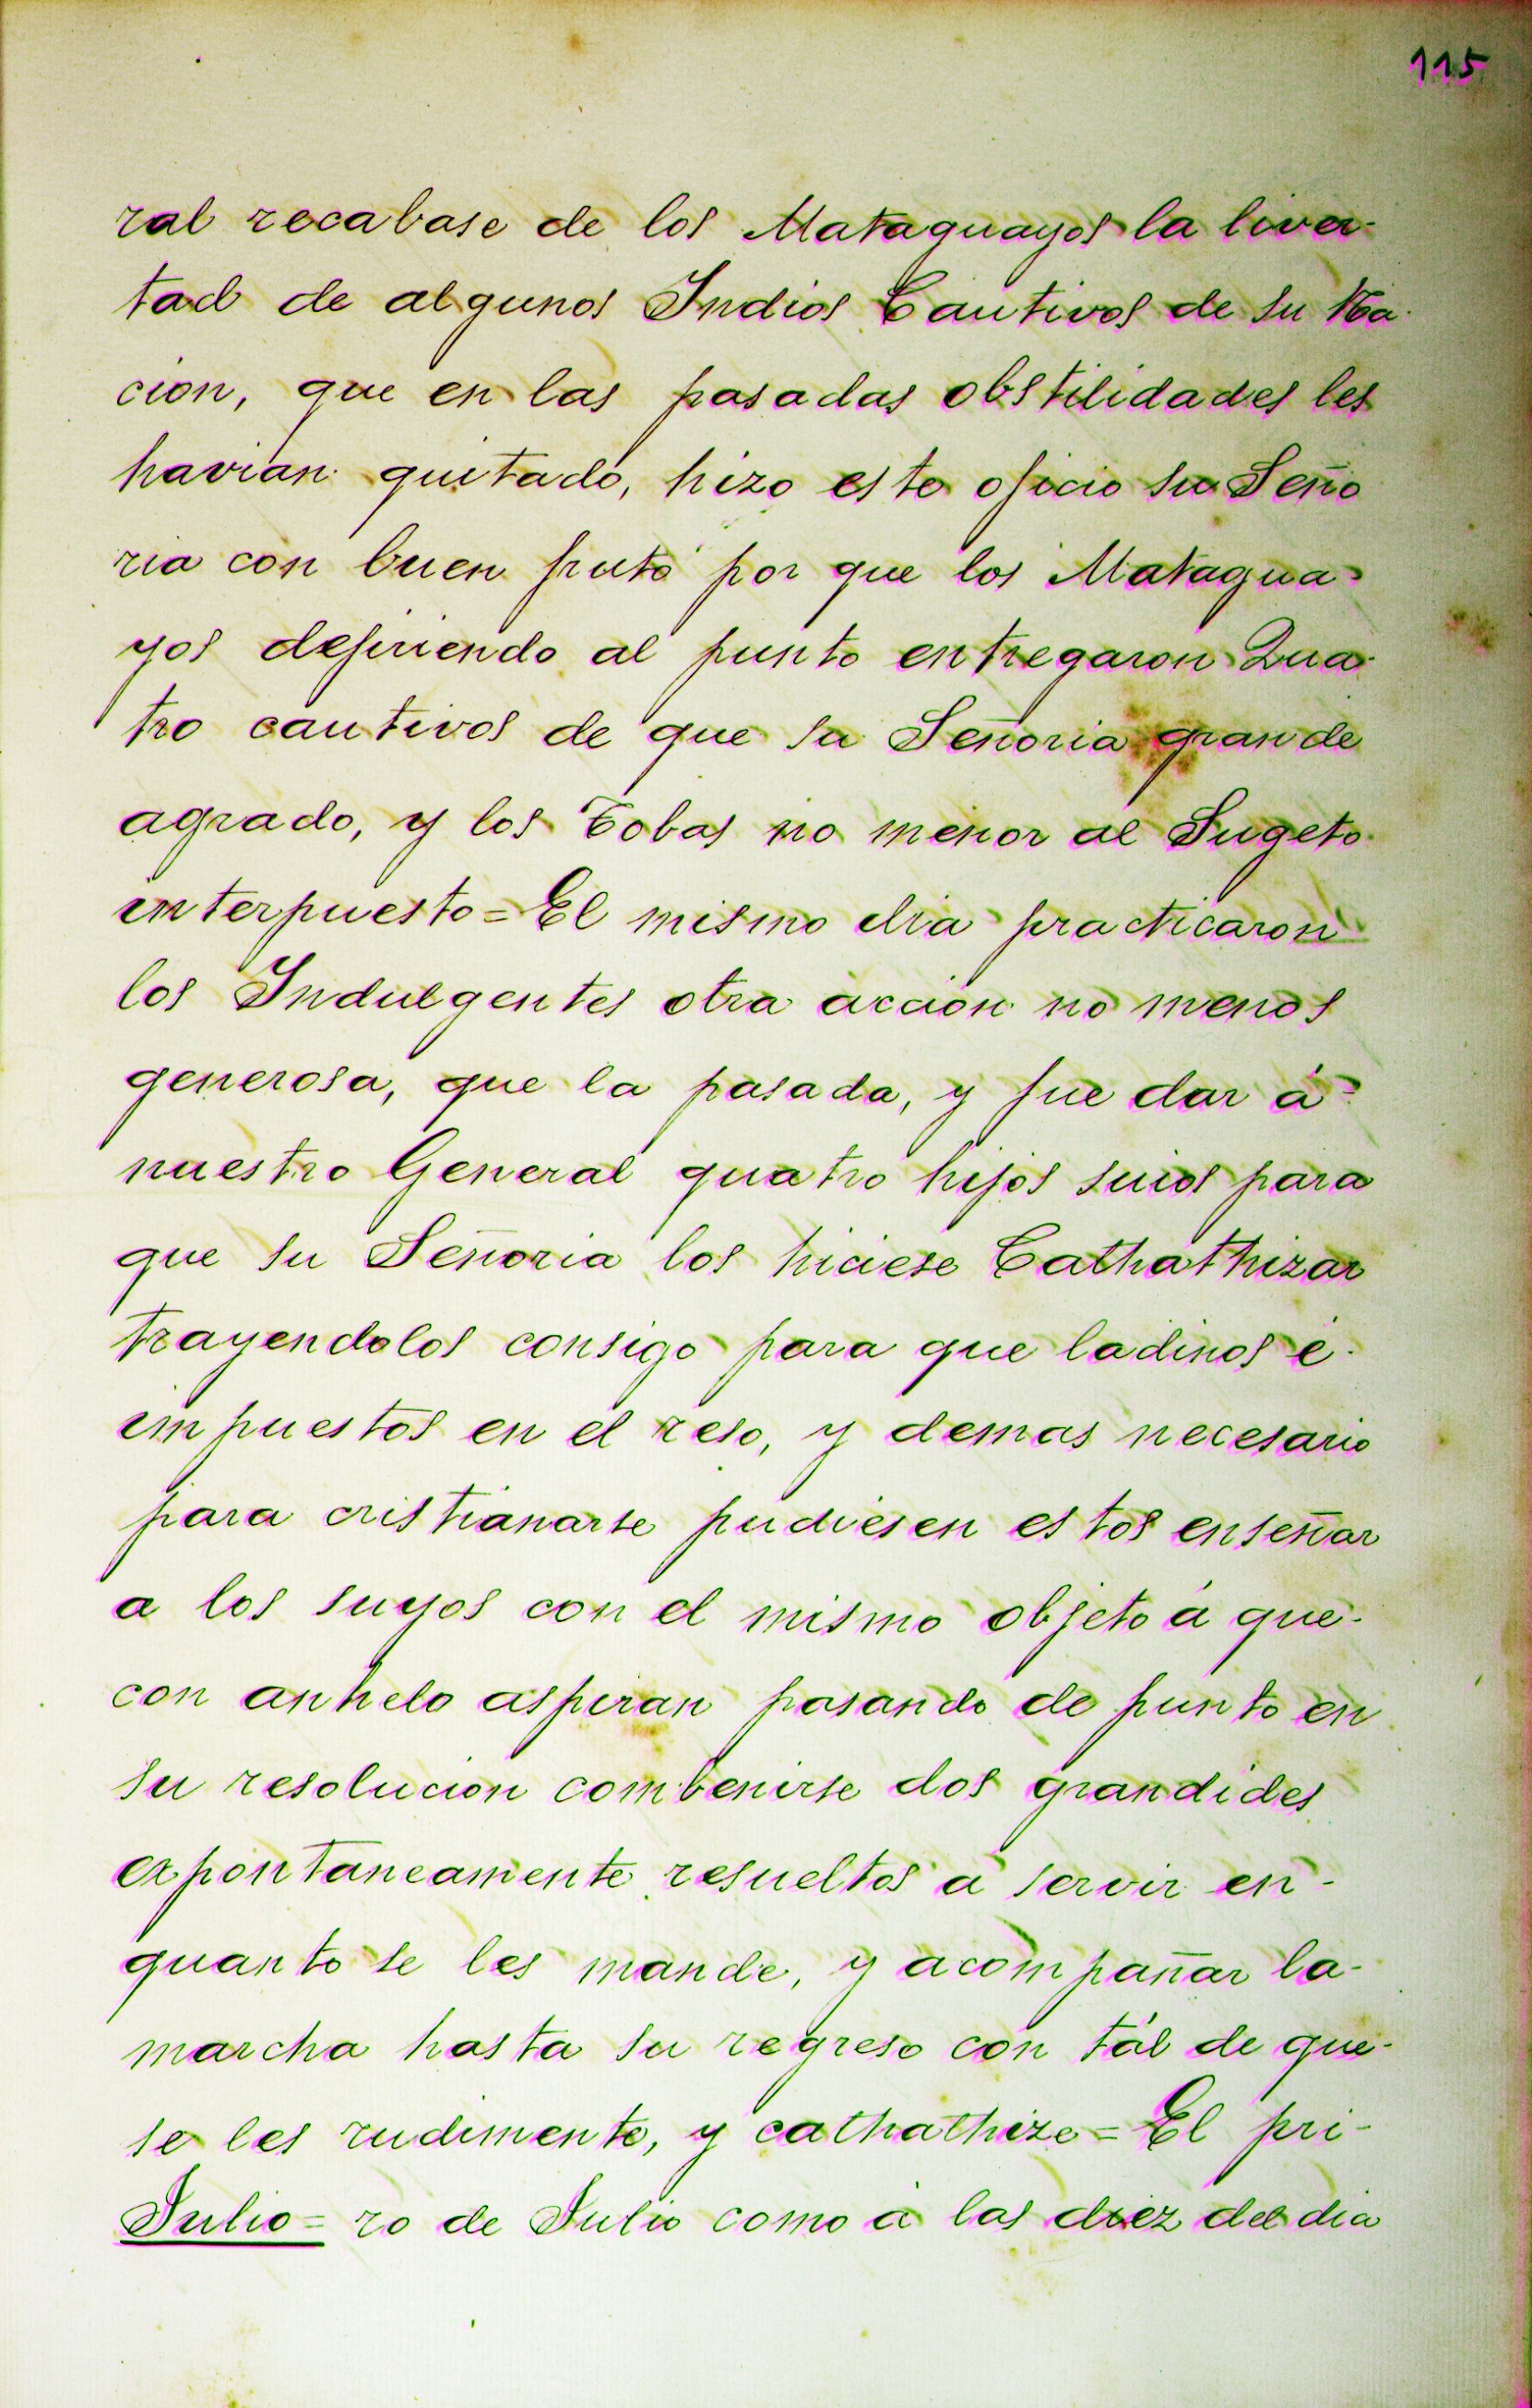 115
ral recabase de los Mataguayos la liver-
tad de algunos Indios Cautivos de su Na-
cion, que en las pasadas obstilidades les
havian quitado, hizo este oficio su Seño
ria con buen fruto por que los Matagua-
yos defiriendo al punto entregaron Qua-
tro cautivos de que su Señoria grande
agrado, y los Tobas no menor al Sugeto
interpuesto = El mismo dia practicaron
los Indulgentes otra accion no menos
generosa, que la pasada, y fue dar á-
nuestro General quatro hijos suios para
que su Señoria los hiciese Cathathizar
trayendolos consigo para que ladinos é-
impuestos en el reso, y demas necesario
para cristianarse pudiesen estos enseñar
a los suyos con el mismo objeto á que-
con anhelo aspiran pasando de punto en
su resolucion combenirse dos grandides
expontaneamente resueltos á servir en-
quanto se les mande, y acompañar la-
marcha hasta su regreso con tál de que-
se les rudimente, y cathathize = El pri-
Julio = ro de Julio como á las diez del dia